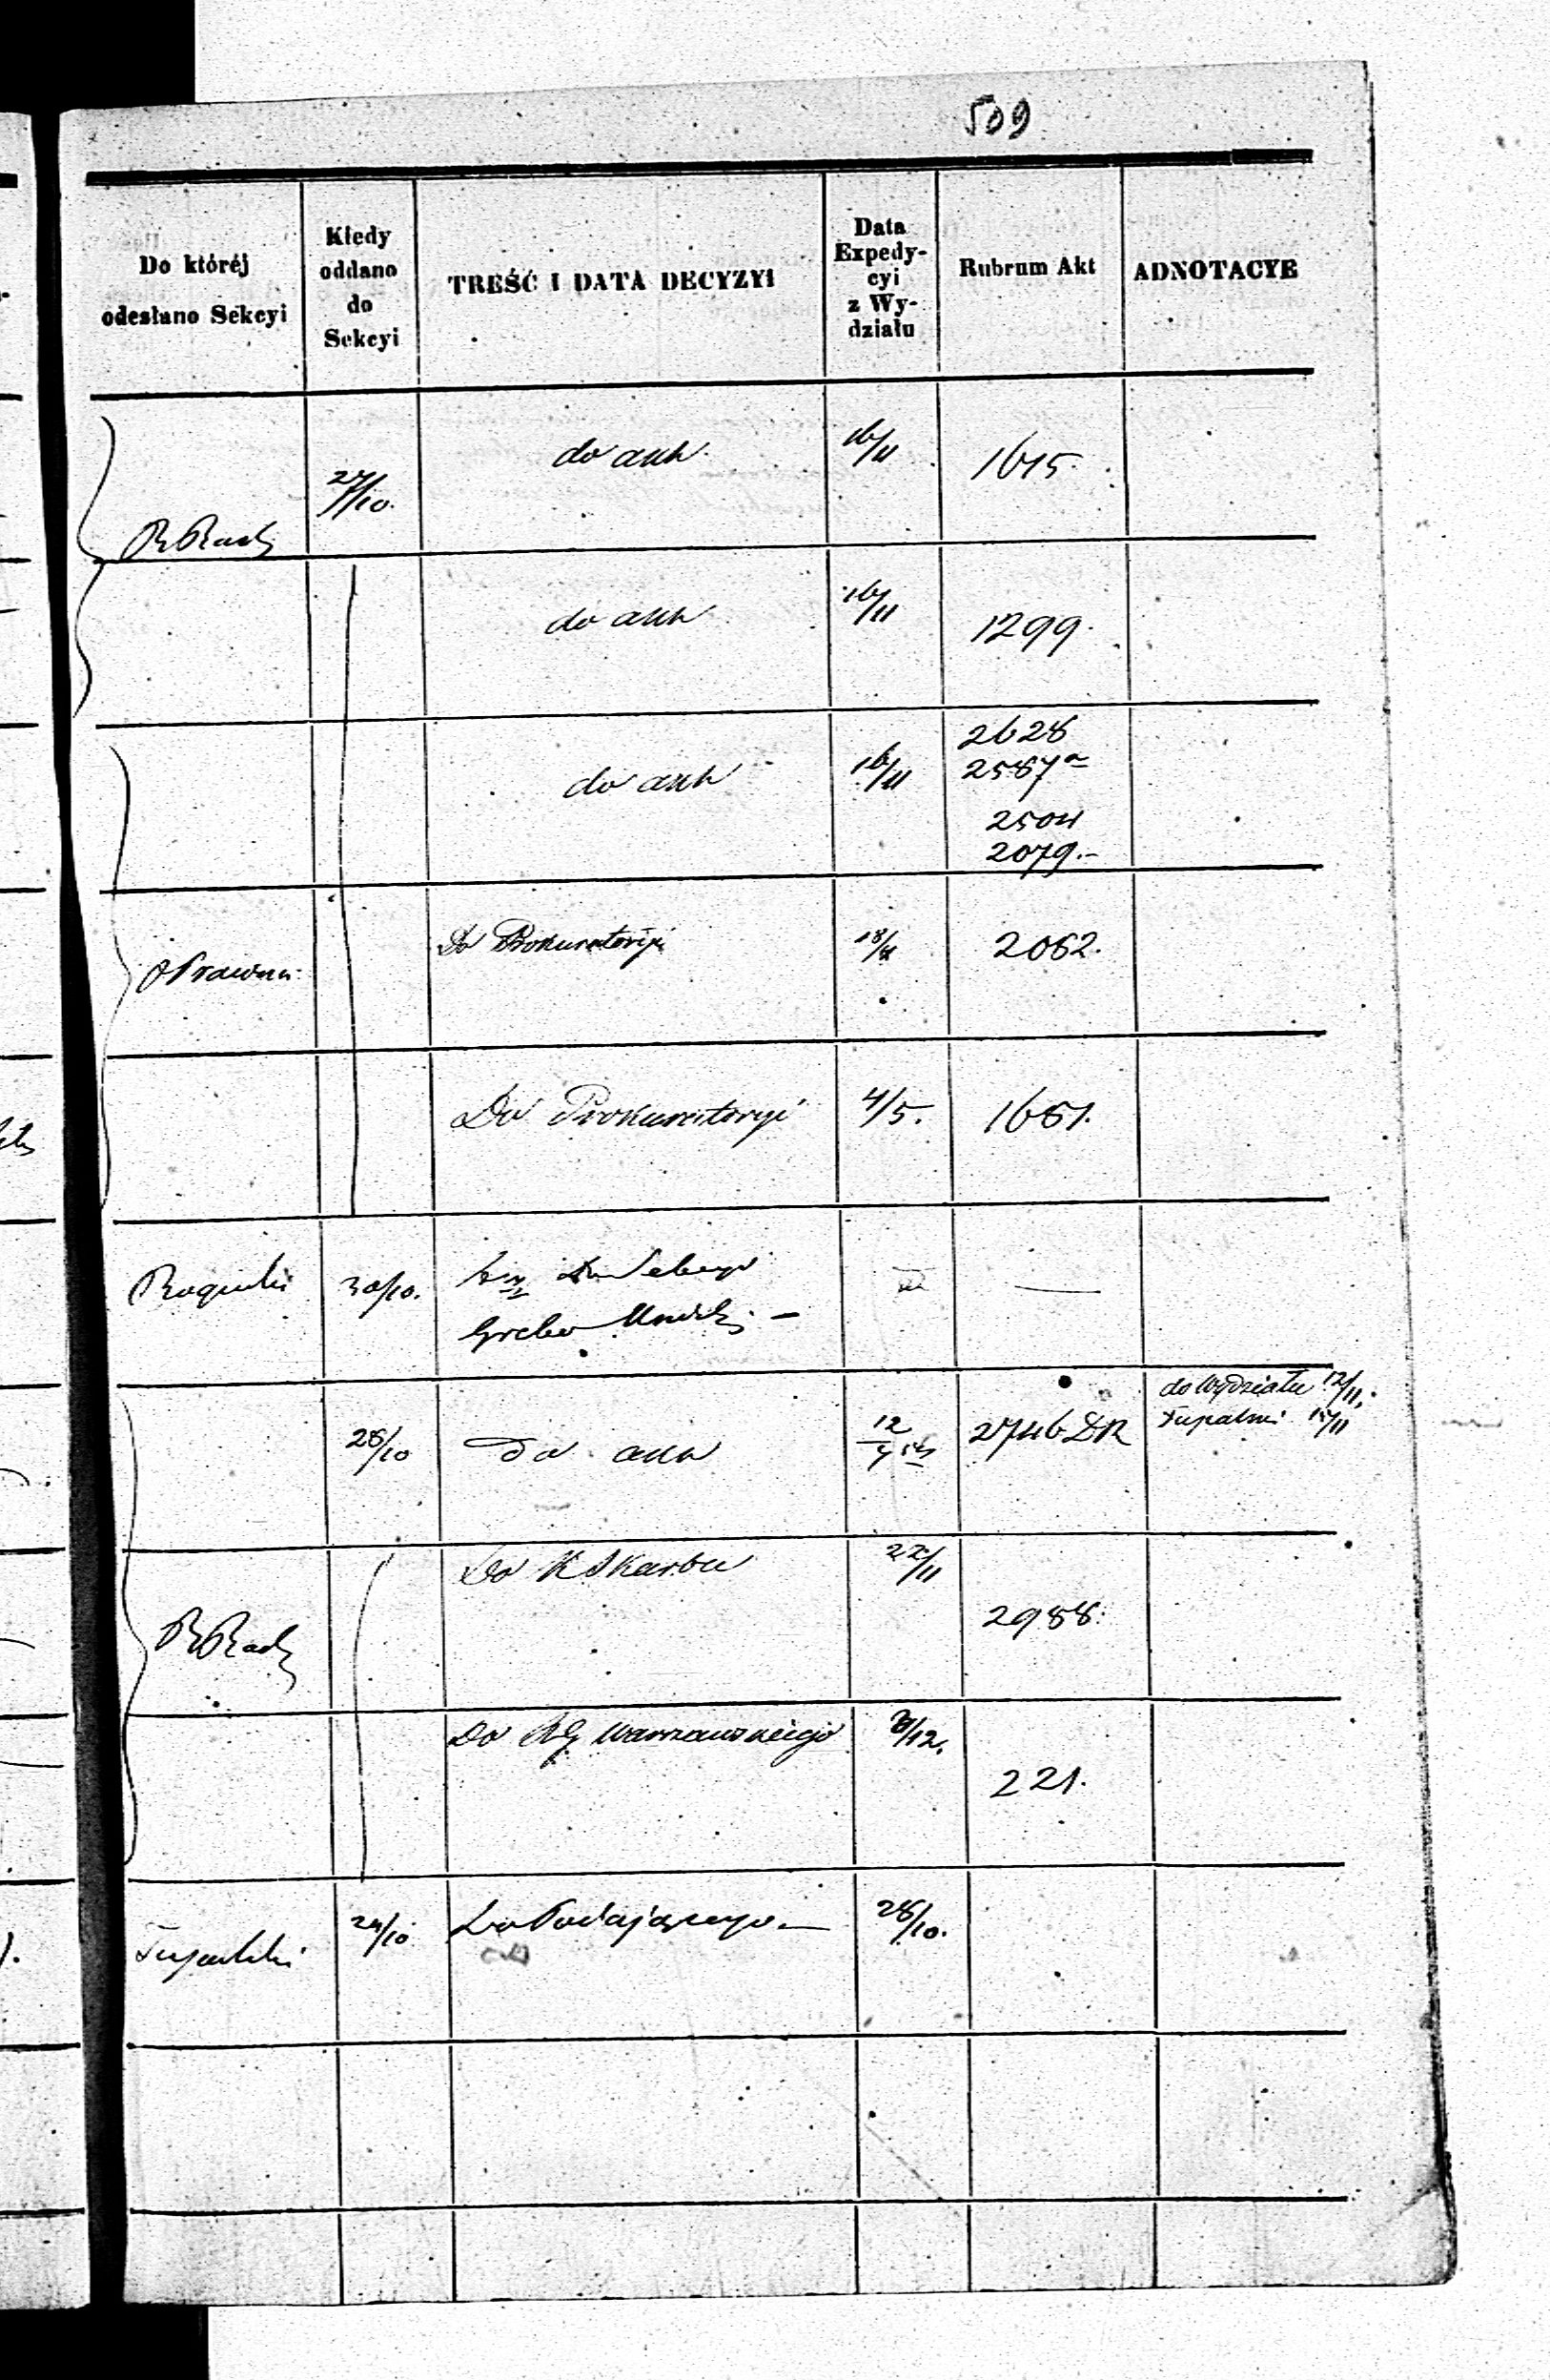 509
Do któréj odesłano Sekcyi
Kiedy oddano do Sekcyi
TREŚĆ I DATA DECYZYI
Data Expedy-cyi z Wy-działu
Rubrum Akt
ADNOTACYE
27/10.
do akt
16/11
1675.
do akt
16/11
1299.
do akt
16/11
2628
2587a
2504
2079.-
Do Prokuratoryi
18/11
2082.
Do Prokuratoryi
4/5.
1681.
30/10.
28/10
do akt
12
2746 DR
do Wydziału 12/11.
Tupalski 15/11
Do K Skarbu
22/11
2988.
Do RG Warszawskiego
/12.
221.
Tupalski
24/10
Do Podającego
28/10.